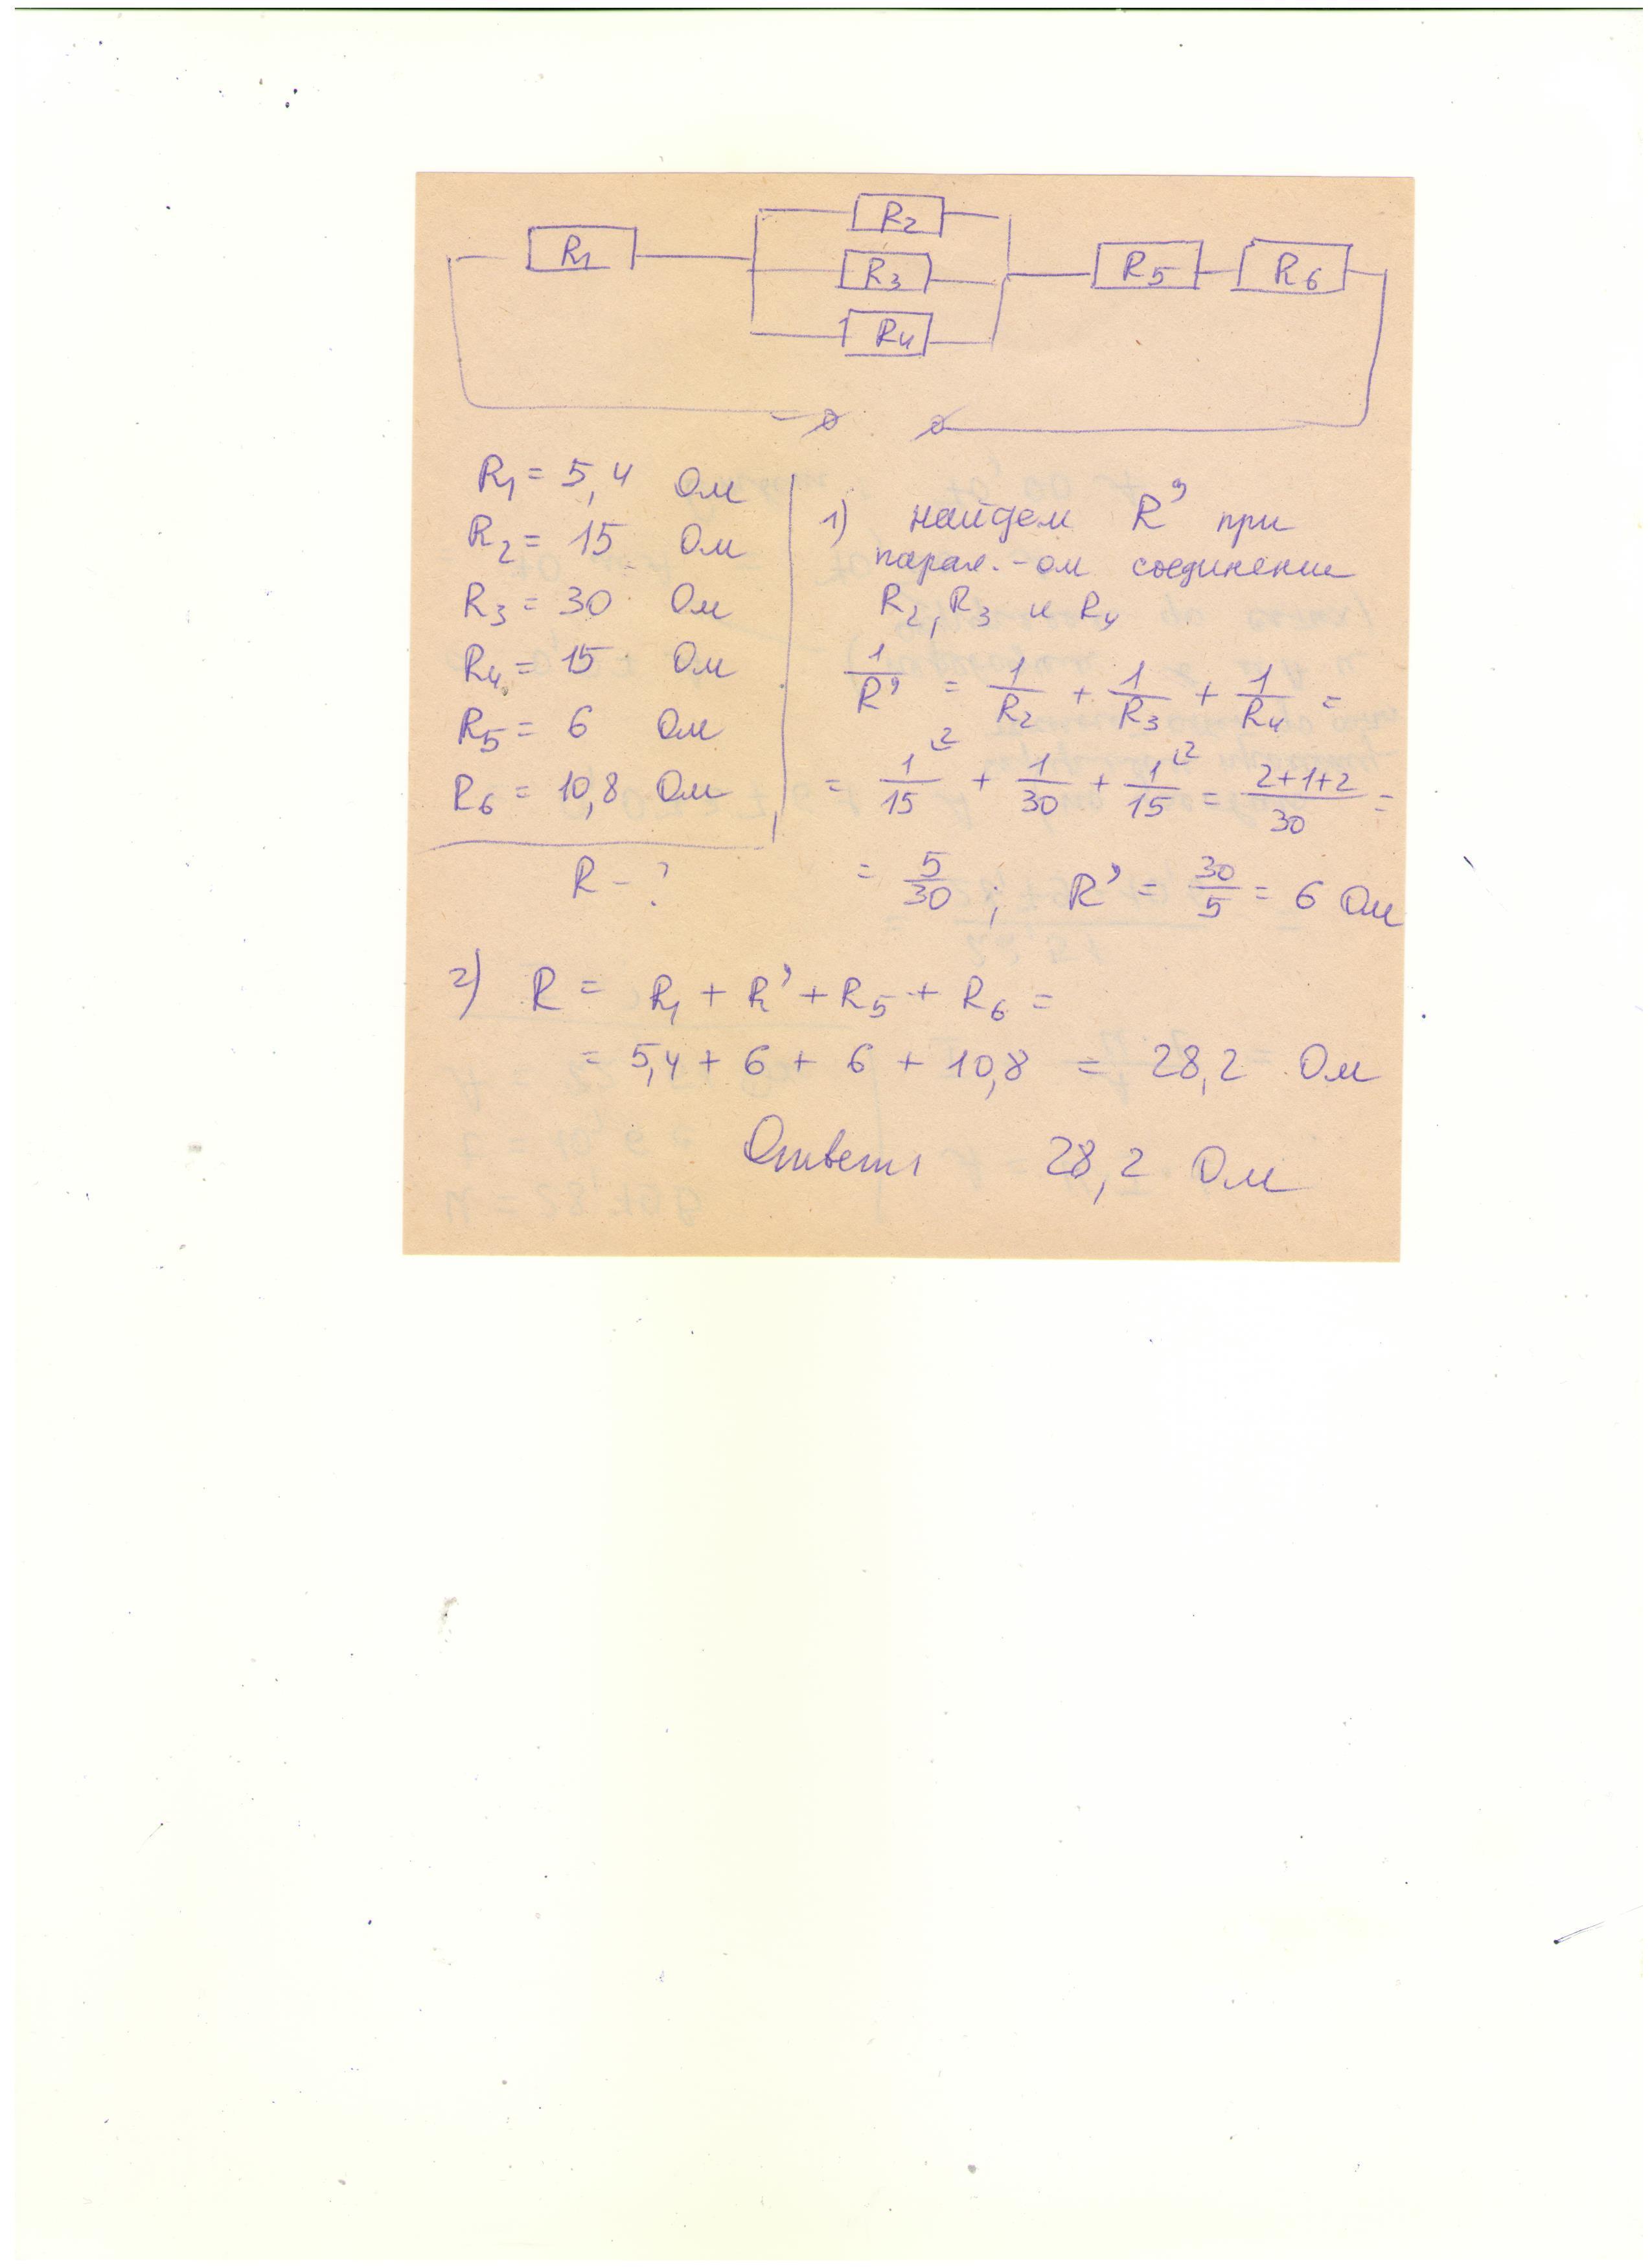 R1
R2
R3
R4
R5
R6
R1 = 5,4 Ом
R2 = 15 Ом
R3 = 30 Ом
R4 = 15 Ом
R5 = 6 Ом
R6 = 10,8 Ом
R - ?
1) найдем R' при
парал.-ом соединение
R2, R3 и R4
1/R' = 1/R2 + 1/R3 + 1/R4 =
= 1/15 ²+ 1/30 + 1/15 ² = 2+1+2/30 =
= 5/30 ; R' = 30/5 = 6 Ом
2) R = R1 + R' + R5 + R6 =
= 5,4 + 6 + 6 + 10,8 = 28,2 Ом
Ответ 28,2 Ом